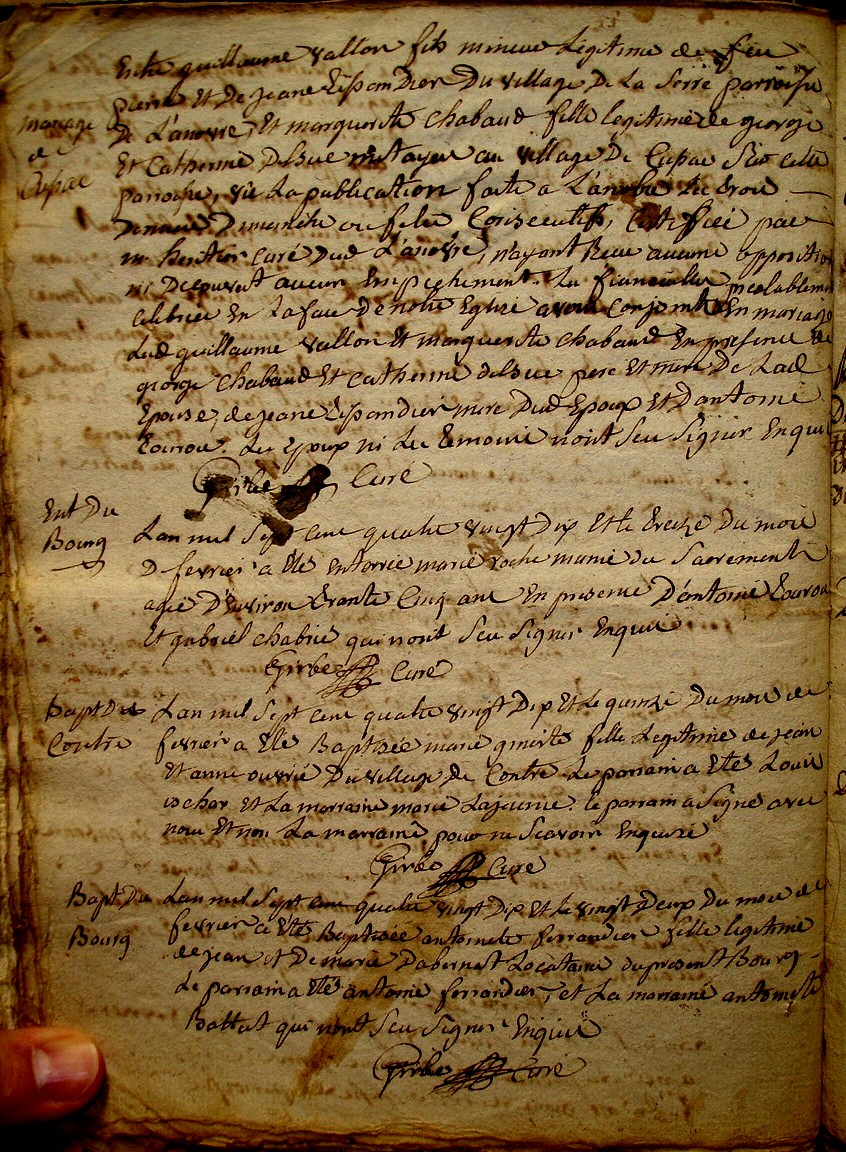 Entre guillaume vallon fils mineur Légitime de feu
pierre Et De jeane Espandier Du village De La Serre parroisse
mariage de Cupac
De L'anobre, Et marguerite Chabaud fille legitime de george
Et Catherine Delsuc metayer au village De Cupac Sur cette
parroisse, vu La publication faite a L'anobre Les trois
Derniers Dimanche ou fetes Consecutifs, Certifiée par
mr heritier Curé Dud L'anobre, n'ayant Recu aucune opposition
ni Decouvert aucun Empechement. Les fiancailles prealablement
celebrées En La face De notre Eglise avons Conjoint En mariage
Led guillaume vallon Et marguerite Chabaud En presence de
george Chabaud Et Catherine delsuc pere Et mere De Lad
Epouse, de jeane Espandier mere Dud Epoux Et D'antoine
Les Epoux ni Les temoins n'ont Seu Signer Enquis
Girbe Curé
Ent Du
Bourg
Lan mil Sept cent quatre vingt Dix Et le treize Du mois
De fevrier a Eté Enterrée marie roche munie des Sacrements
agée D'Environ trante Cinq ans En presence D'antoine
Et gabriel chabrié qui n'ont Seu Signer Enquis
Girbe Curé
Bapt De
Contre
Lan mil Sept cent quatre vingt Dix Et le quinze Du mois de
fevrier a Eté Baptisée marie fille Legitime de jean
Et anne ouvrié Du village de Contre Le parrain a Eté Louis
Et La marraine marie Lajeunie. le parrain a Signé avec
nous Et non La marraine pour ne Scavoir Enquise
Girbe Curé
Bapt Du
Bourg
Lan mil Sept cent quatre vingt Dix Et le vingt Deux Du mois de
fevrier a Eté Baptisée antoinete ferrandier fille legitime
de jean et De marie Dabernat Locataire du present Bourg
Le parrain a Eté antoine ferrandier, et La marraine antoinette
Battut qui n'ont Seu Signer Enquis
Girbe Curé